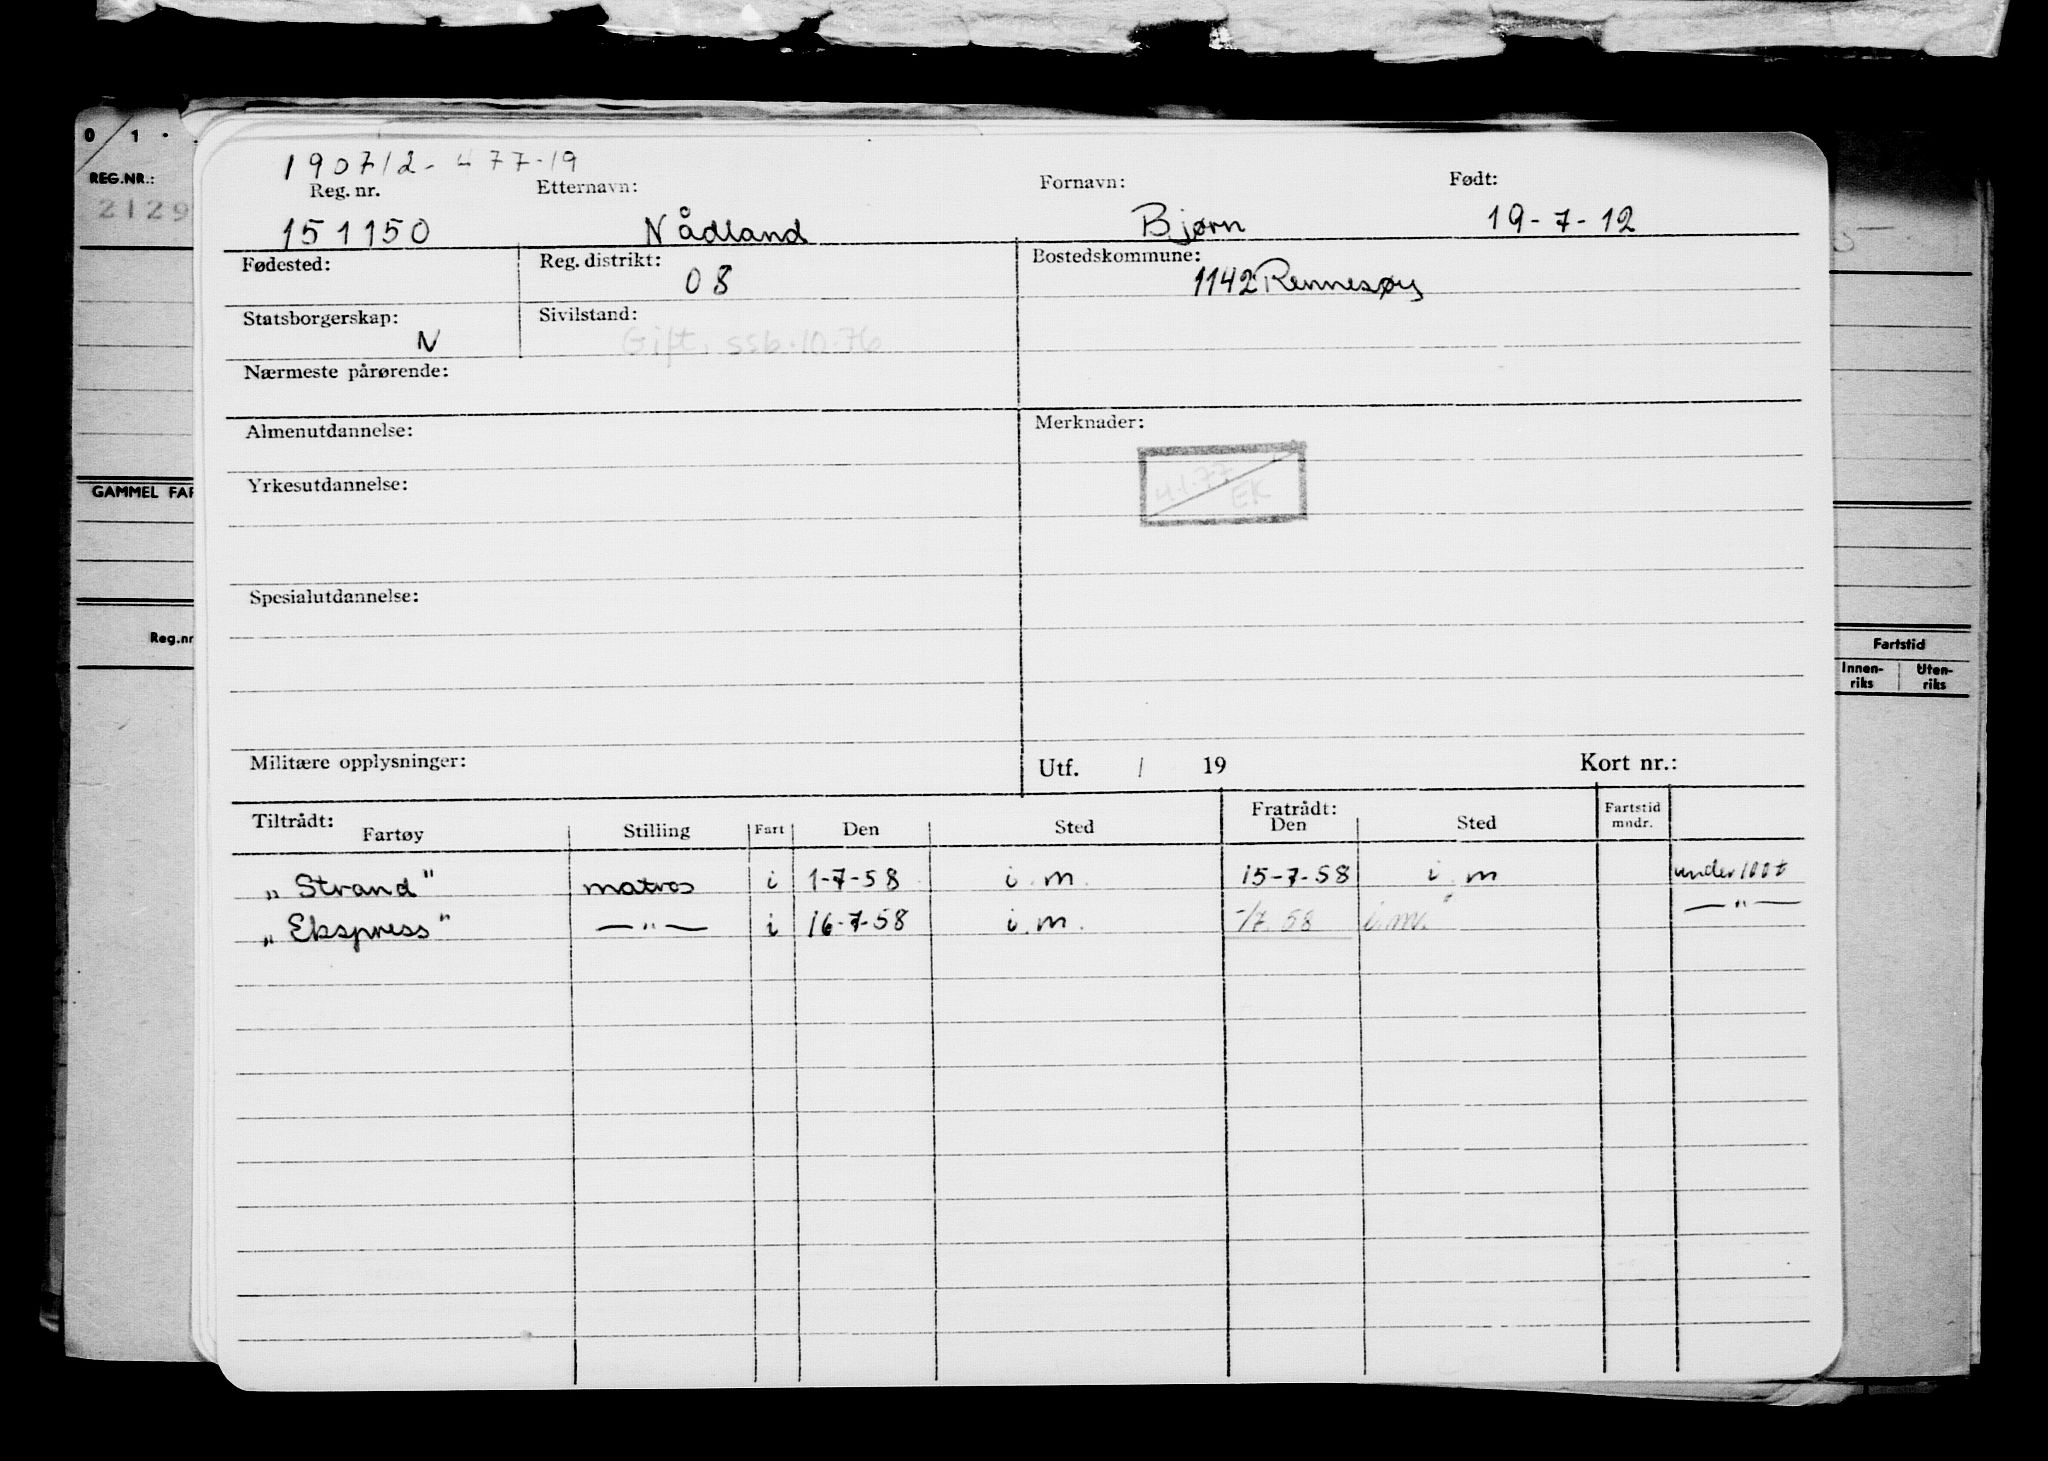 0/1.
REG.NR.:
2129
GAMMEL FAR
Reg.nr
190712-47719
Reg. nr. Etternavn: Fornavn: Født:
151150 Nådland Bjørn 19-7-12
Fødested: Reg. distrikt: 08 Bostedskommune: 1142 Rennesøy
Statsborgerskap: N Sivilstand: Gift. ssb.10.76
Nærmeste pårørende:
Almenutdannelse: Merknader:
4.1.77
EK
Yrkesutdannelse:
Spesialutdannelse:
Militære opplysninger: Utf. / 19 Kort nr.:
Tiltrådt: Fratrådt: Fartstid
Fartøy Stilling Fart Den Sted Den Sted mndr.
„Strand" matros i 1-7-58 i.m. 15-7-58 i.m under 100t
„Ekspress" —"— i 16-7-58 i.m. -/7 58 i.m. —"—
Fartstid
Innen-riks Uten-riks